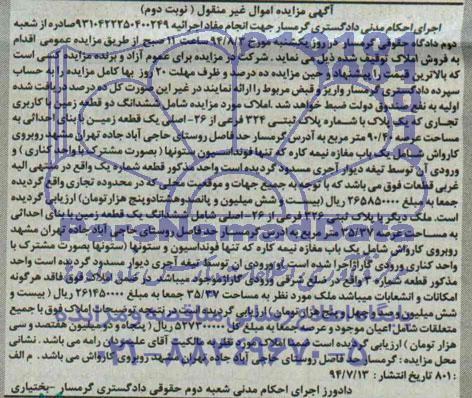 آگهی مزایده اموال غیر منقول ( نوبت دوم )
اجرای احکام مدنی دادگستری گرمسار جهت انجام مفاد اجرائیه ۹۳۱۰۴۲۲۲۵۰۴۰۰۲۴۹ صادره از شعبه
دوم دادگاه حقوقی گرمسار در روز یکشنبه مورخ ساعت ۱۱ صبح از طریق مزایده عمومی اقدام
به فروش املاک توقیف شده ذیل می نماید . شرکت در مزایده برای عموم آزاد و برنده مزایده کسی است
که بالاترین قیمت را پیشنهاد و حین مزایده ده درصد و ظرف مهلت ۲۰ روز بها کامل مزایده را به حساب
سپرده دادگستری گرمسار واریز و قبض مربوط را ارائه نمایند در غیر این صورت کل ده درصد دریافت شده
اولیه به نفع صندوق دولت ضبط خواهد شد .املاک مورد مزایده شامل ششدانگ دو قطعه زمین با کاربری
تجاری که یک پلاک با شماره پلاک ثبتی ۳۲۴ فرعی از ۲۶- اصلی یک قطعه زمین با بنای احداثی به
مساحت عرصه ۹۰/۴۰ متر مربع به آدرس گرمسار حد فاصل روستای حاجی آباد جاده تهران مشهد روبروی
کارواش شامل یک باب مغازه نیمه کاره که تنها فونداسیون و ستونها ( بصورت مشترک با واحد کناری ) و
ورودی آن توسط تیغه دیوار آجری مسدود گردیده است واحد مذکور قطعه شماره یک واقع در منتهی الیه
غربی قطعات فوق می باشد که با توجه به جمیع جهات و موقعیت محلی که در محدوده تجاری واقع گردیده
جمعا به مبلغ ۲۶۵۸۵۰۰۰ ریال ( بیست و شش میلیون و پانصد وهشتادوپنج هزارتومان) ارزیابی گردیده
است. ملک دیگر با پلاک ثبتی ۳۲۶ فرعی از ۲۶-اصلی شامل ششدانگ یک قطعه زمین با بنای احداثی
به مساحت عرصه ۳۵/۳۷ متر مربع به آدرس گرمسار حد فاصل روستای حاجی آباد جاده تهران مشهد
روبروی کارواش شامل یک باب مغازه نیمه کاره که تنها فونداسیون و ستونها بصورت مشترک با
واحد کناری ورودی گاراژ اجرا شده است و ورودی آن توسط تیغه آجری دیوار مسدود گردیده است واحد
مذکور قطعه شماره ۲ واقع در ضلع شرقی ورودی گاراژ موجود میباشد. در ضمن املاک فوق فاقد هرگونه
امکانات و انشعابات میباشد ملک مورد نظر به مساحت ۳۵/۳۷ جمعا به مبلغ ۲۶۱۴۵۰۰۰ ریال ( بیست و
شش میلیون و صد و چهل و پنج هزار تومان ) ارزیابی گردیده است در نتیجه با توضیحات فوق با جمیع
متعلقات شامل اعیان موجود و عرصه جمعا به مبلغ کل ۵۲۷۳۰۰۰۰ ریال ( پنجاه و دو میلیون هفتصد و سی
هزار تومان ) ارزیابی گردیده است ضمنا املاک مورد نظر به مالکیت آقای علی مردان رامه می باشد . نشانی
محل مزایده : گرمسار حد فاصل روستای حاجی آباد جاده تهران مشهد روبروی کارواش می باشد. م الف
:۸۰۱ تاریخ انتشار : ۹۴/۷/۱۳
دادورز اجرای احکام مدنی شعبه دوم حقوقی دادگستری گرمسار -بختیاری
۰۲۱-۸۸۳۴۹۶۷۰-۵